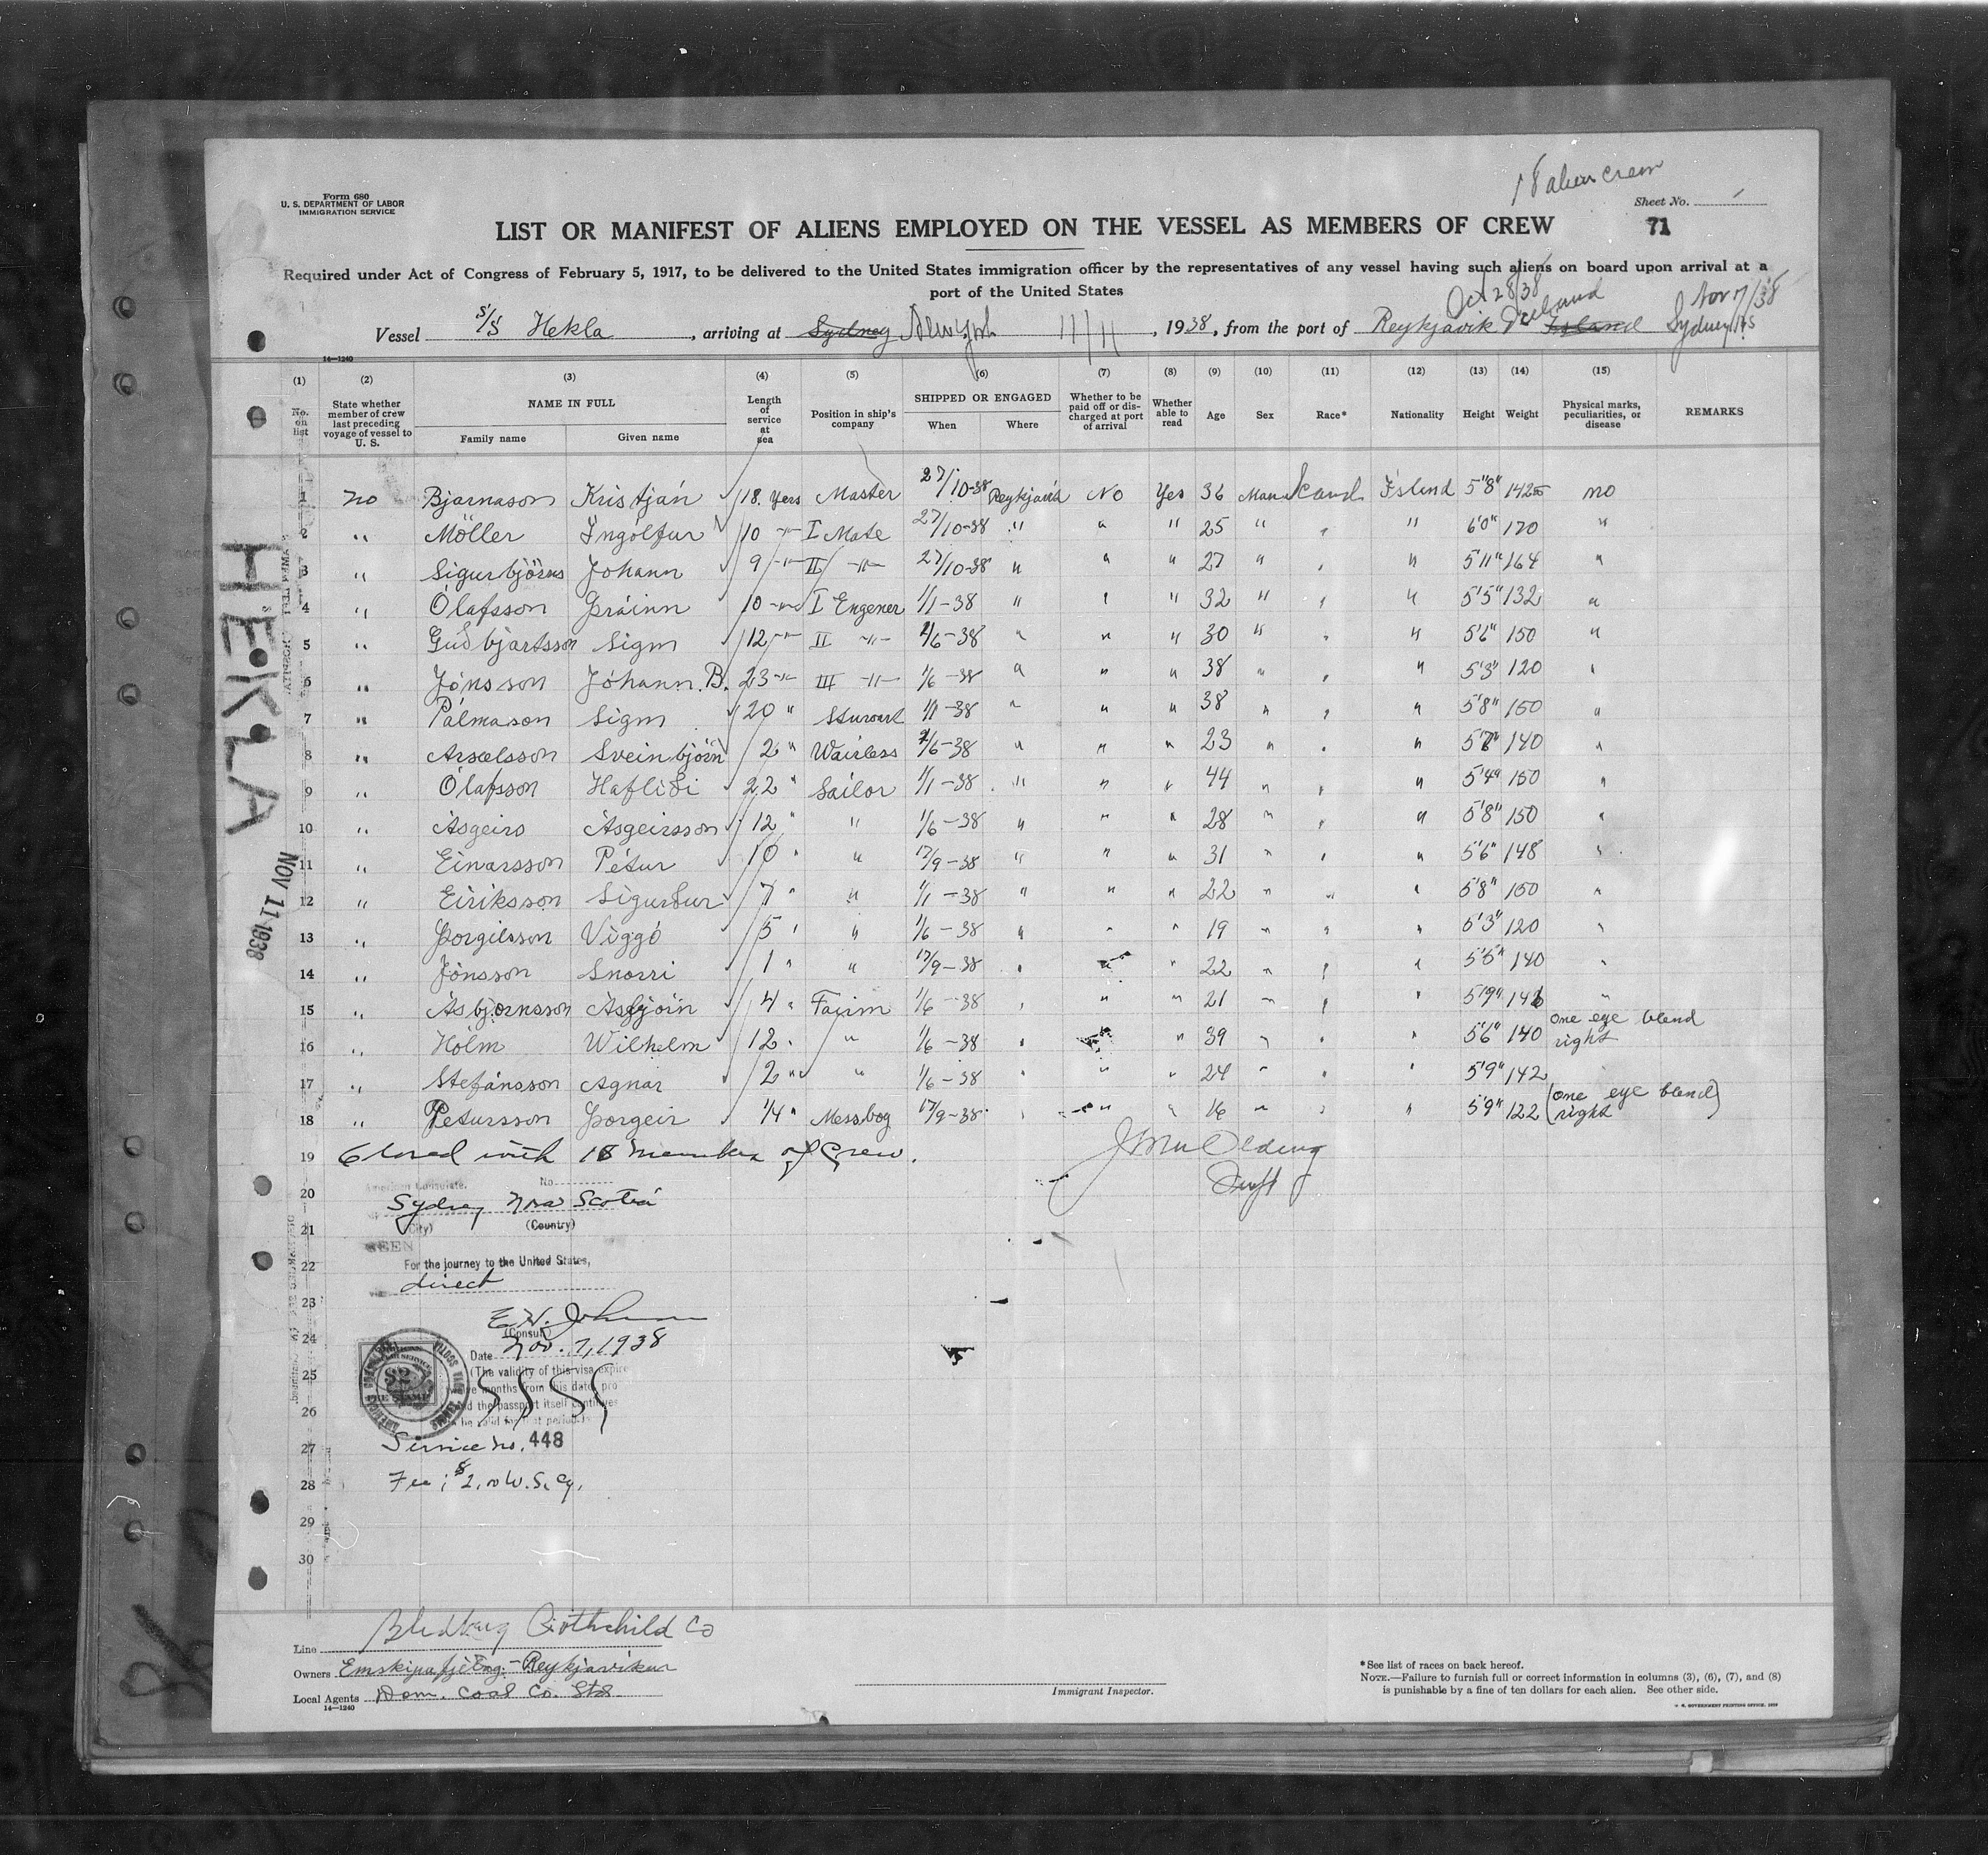 18 alien crew
Form 680
U. S. DEPARTMENT OF LABOR
IMMIGRATION SERVICE
Sheet No. 1
LIST OR MANIFEST OF ALIENS EMPLOYED ON THE VESSEL AS MEMBERS OF CREW
71
Required under Act of Congress of February 5, 1917, to be delivered to the United States immigration officer by the representatives of any vessel having such aliens on board upon arrival at a
port of the United States
Oct 28/38 Nov 7/38
Vessel S/S Hekla, arriving at Sydney New York 11/11, 1938, from the port of Reykjavik Iceland Island Sydney N.S
14—1240
(1) (2) (3) (4) (5) (6) (7) (8) (9) (10) (11) (12) (13) (14) (15)
No. on list
State whether member of crew last preceding voyage of vessel to U. S.
NAME IN FULL
Family name Given name
Length of service at sea
Position in ship's company
SHIPPED OR ENGAGED
When Where
Whether to be paid off or discharged at port of arrival
Whether able to read
Age Sex Race* Nationality Height Weight
Physical marks, peculiarities, or disease
REMARKS
1 no Bjarnason Kristján 18 Yers Master 27/10-38 Reykjavik No Yes 36 Man Scand Island 5'8" 142 no
2 " Möller Ingólfur 10 -"- I Mate 27/10-38 " " " 25 " " " 6'0" 170 "
3 " Sigurbjörns Johann 9 -"- II -"- 27/10-38 " " " 27 " " " 5'11" 164 "
4 " Ólafsson Þráinn 10 -"- I Engener 1/1-38 " " " 32 " " " 5'5" 132 "
5 " Guðbjartsson Sigm 12 -"- II -"- 1/6-38 " " " 30 " " " 5'6" 150 "
6 " Jónsson Jóhann.B. 23 -"- III -"- 1/6-38 " " " 38 " " " 5'3" 120 "
7 " Pálmason Sigm 20 " Stuwart 1/1-38 " " " 38 " " " 5'8" 150 "
8 " Arsælsson Sveinbjörn 2 " Wairless 1/6-38 " " " 23 " " " 5'7" 140 "
9 " Ólafsson Hafliði 22 " Sailor 1/1-38 " " " 44 " " " 5'4" 150 "
10 " Ásgeirs Ásgeirsson 12 " " 1/6-38 " " " 28 " " " 5'8" 150 "
11 " Einarsson Pétur 10 " " 17/9-38 " " " 31 " " " 5'6" 148 "
12 " Eiriksson Sigurður 7 " " 1/1-38 " " " 22 " " " 5'8" 150 "
13 " Þorgilsson Viggó 5 " " 1/6-38 " " " 19 " " " 5'3" 120 "
14 " Jónsson Snorri 1 " " 17/9-38 " " " 22 " " " 5'5" 140 "
15 " Ásbjörnsson Ásbjörn 4 " Fairm 1/6-38 " " " 21 " " " 5'9" 146 "
16 " Hólm Wilhelm 12 " " 1/6-38 " " " 39 " " " 5'6" 140 one eye blend right
17 " Stefánsson Agnar 2 " " 1/6-38 " " " 24 " " " 5'9" 142
18 " Petursson Þorgeir 1/4 " Messboy 17/9-38 " " " 16 " " " 5'9" 122 (one eye blend right)
19 Closed with 18 members of Crew.
20 American Consulate. No.
Sydney Nova Scotia
21 (City) (Country)
SEEN
22 For the journey to the United States,
via direct
23
E. H. Johnson
(Consul)
24
Date Nov. 7, 1938
25 (The validity of this visa expires
months from this date, pro
and the passport itself continues
26 be valid for that period.)
27 Service no. 448
28 Fee; $2.00 U.S. Cy.
29
30
HEKLA
NOV 11 1938
Line Rothchild Co
Owners Reykjavikur
Local Agents Dom. Coal Co. Ltd.
14—1240
Immigrant Inspector.
*See list of races on back hereof.
NOTE.—Failure to furnish full or correct information in columns (3), (6), (7), and (8)
is punishable by a fine of ten dollars for each alien. See other side.
U. S. GOVERNMENT PRINTING OFFICE